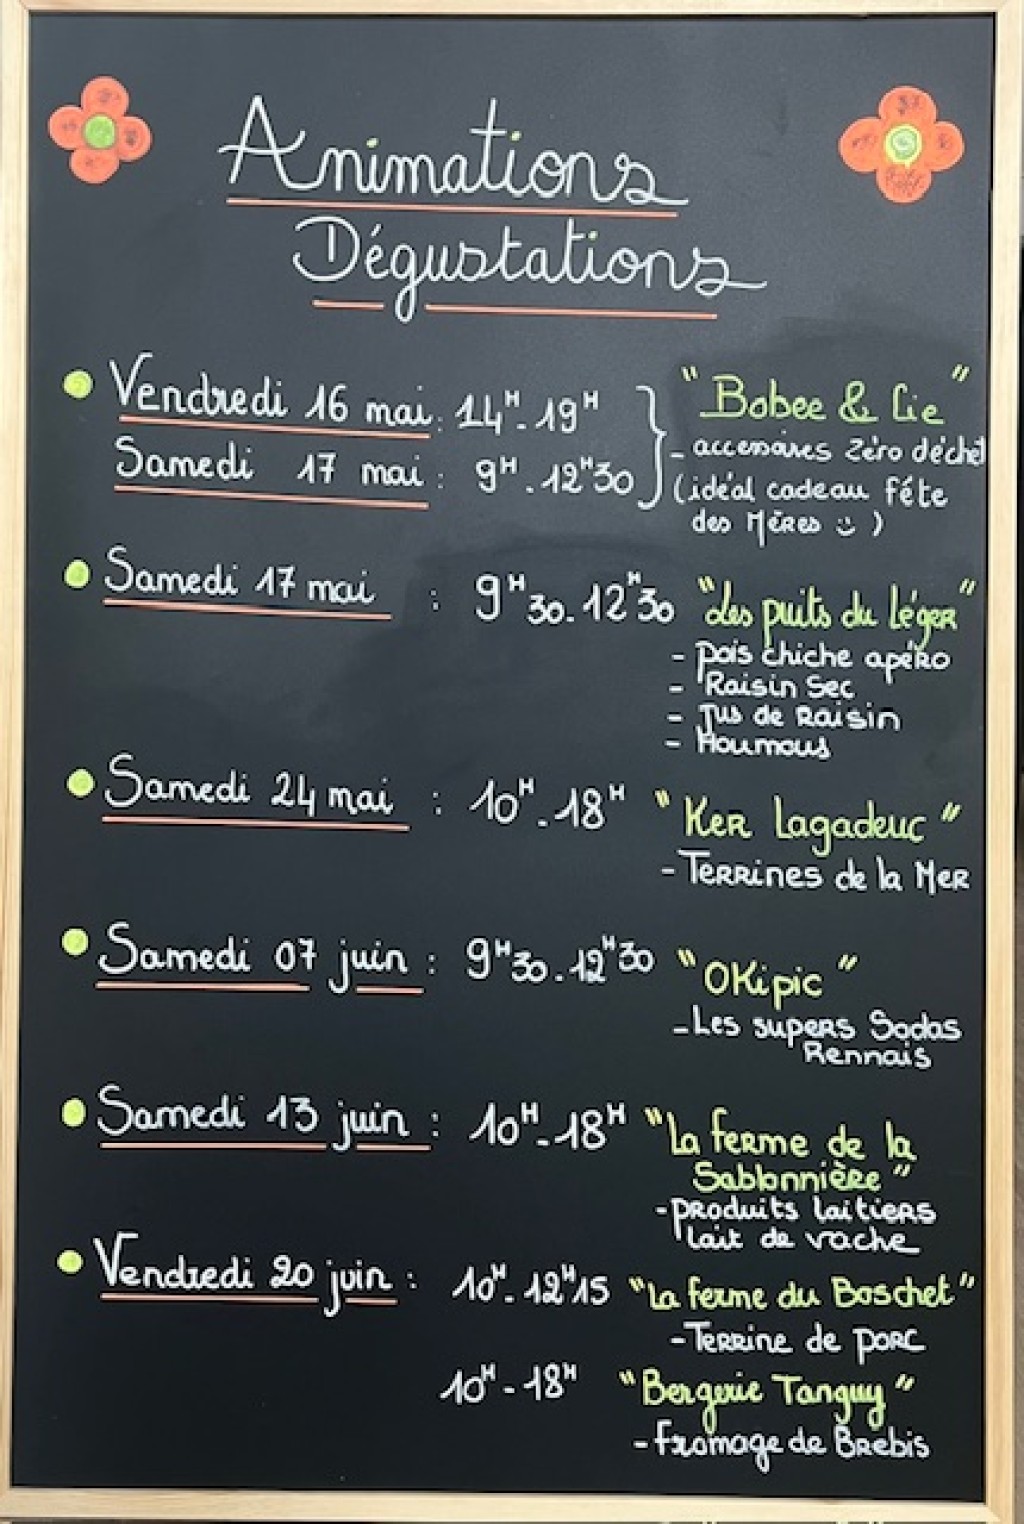 Animations
Dégustations
Vendredi 16 mai: 14H-19H "Bobee & Cie"
Samedi 17 mai: 9H-12H30 - accessoires Zéro déchet
(idéal cadeau fête
des Mères ☺)
Samedi 17 mai : 9H30-12H30 "Les puits du Léger"
- pois chiche apéro
- Raisin Sec
- Jus de Raisin
- Houmous
Samedi 24 mai : 10H-18H "Ker Lagadeuc"
- Terrines de la Mer
Samedi 07 juin : 9H30-12H30 "OKipic"
- Les supers Sodas
Rennais
Samedi 13 juin : 10H-18H "La ferme de la
Sablonnière"
- produits laitiers
lait de vache
Vendredi 20 juin : 10H-12H15 "La ferme du Boschet"
- Terrine de porc
10H-18H "Bergerie Tanguy"
- fromage de Brebis